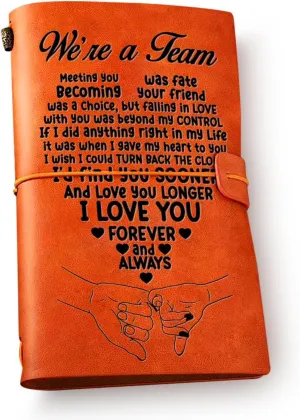 We're a Team
Meeting you was fate
Becoming your friend
was a choice, but falling in LOVE
with you was beyond my CONTROL
If I did anything right in my Life
it was when I gave my heart to you
I wish I could TURN BACK THE CLOCK
I'd find you SOONER
And Love you LONGER
I LOVE YOU
FOREVER
and
ALWAYS